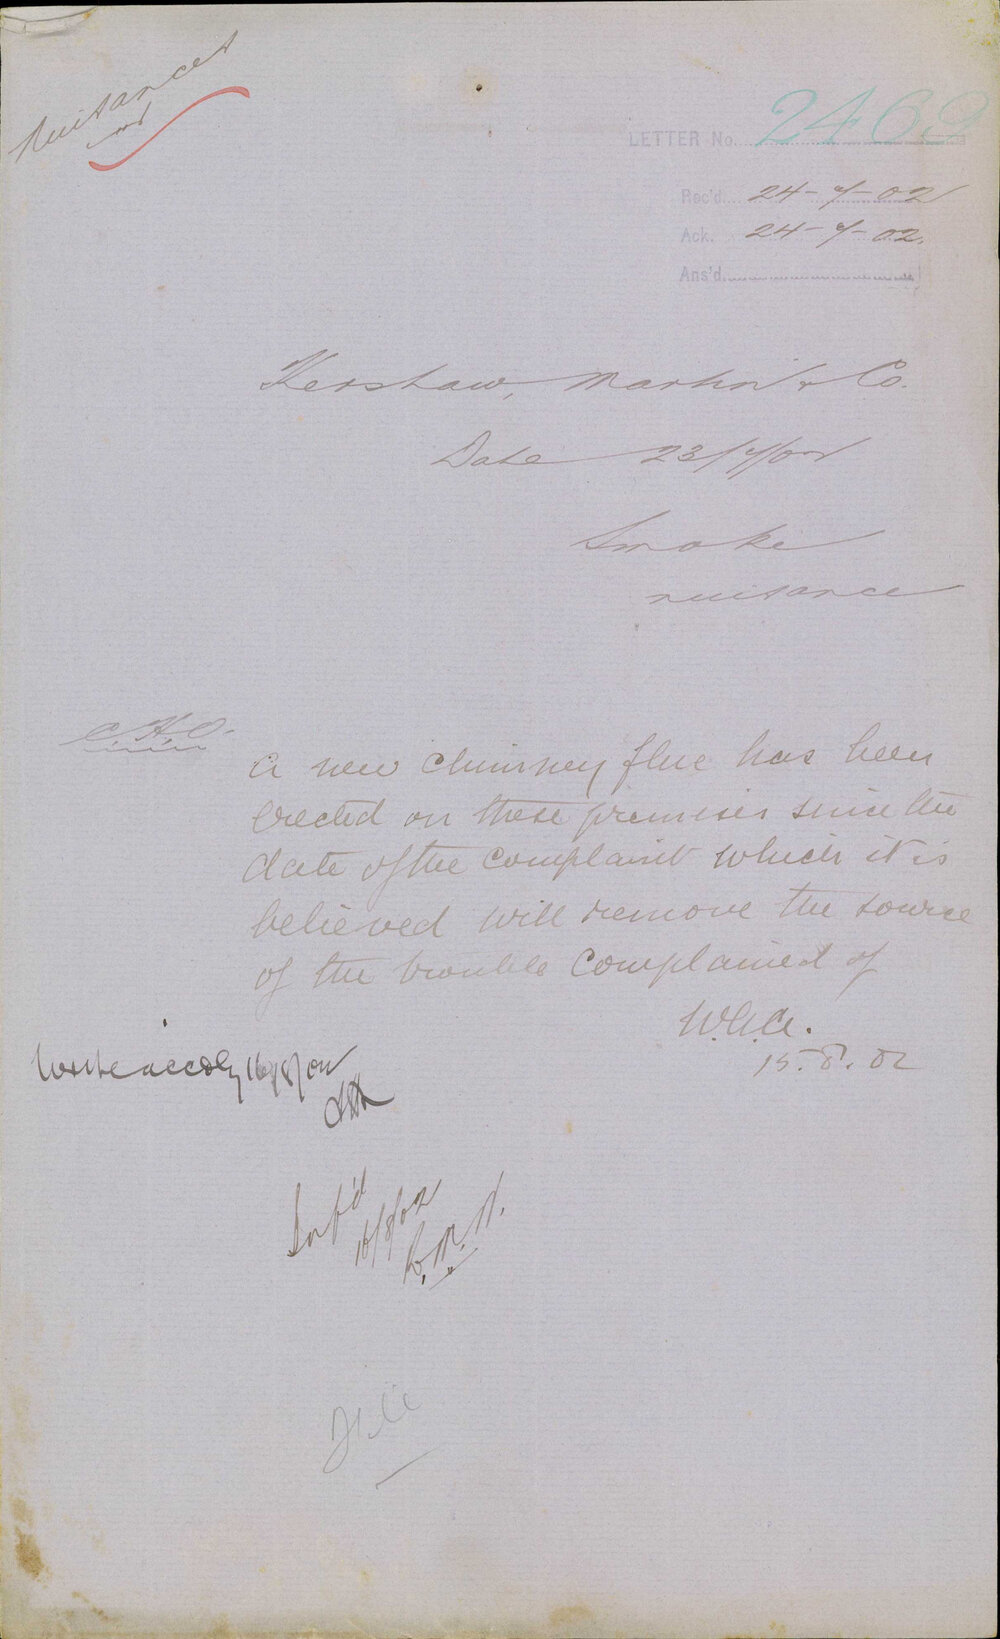 Nuisances
LETTER No. 2469
Rec'd 24-7-02
Ack. 24-7-02.
Ans'd
Kershaw, Martin & Co.
Date 23/7/02
Smoke
nuisance
C.H.O.
A new chimney flue has been
erected on these premises since the
date of the complaint which it is
believed will remove the source
of the trouble complained of
15.8.02
Write accdly 16/8/02
Inf'd
16/8/02
File